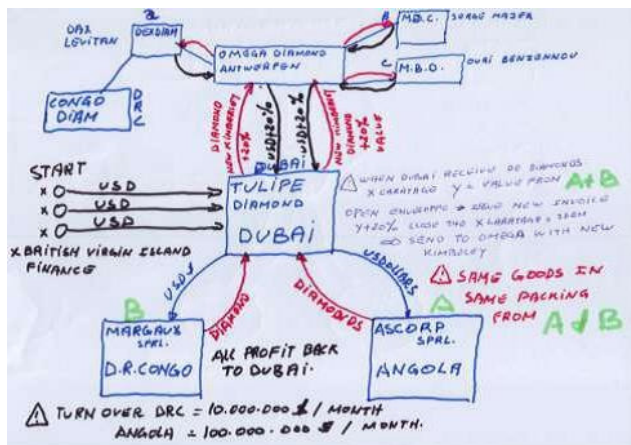 DAX
LEVITAN
DEXDIAM
CONGO
DIAM
D
R
C
OMEGA DIAMOND
ANTWERPEN
B
M.D.C.
C
M.B.D.
DIAMOND
NEW KIMBERLEY
+20%
USD+20%
USD+20%
NEW
DIAMOND
+20%
VALUE
START
X USD
X USD
X USD
X BRITISH VIRGIN ISLAND
FINANCE
DUBAI
TULIPE
DIAMOND
DUBAI
WHEN DUBAI RECEIVE DE DIAMONDS
X CARATAGE Y = VALUE FROM A+B
OPEN NEW INVOICE
Y+20% THE X CARATAGE
SEND TO OMEGA WITH NEW
KIMBERLEY
SAME GOODS IN
SAME PACKING
FROM A B
USD $
DIAMOND
DIAMONDS
USDOLLARS
B
MARGAUX
SPRL.
D.R.CONGO
ALL PROFIT BACK
TO DUBAI.
A
ASCORP
SPRL.
ANGOLA
TURN OVER DRC = 10.000.000 $ / MONTH
ANGOLA = 100.000.000 $ / MONTH.